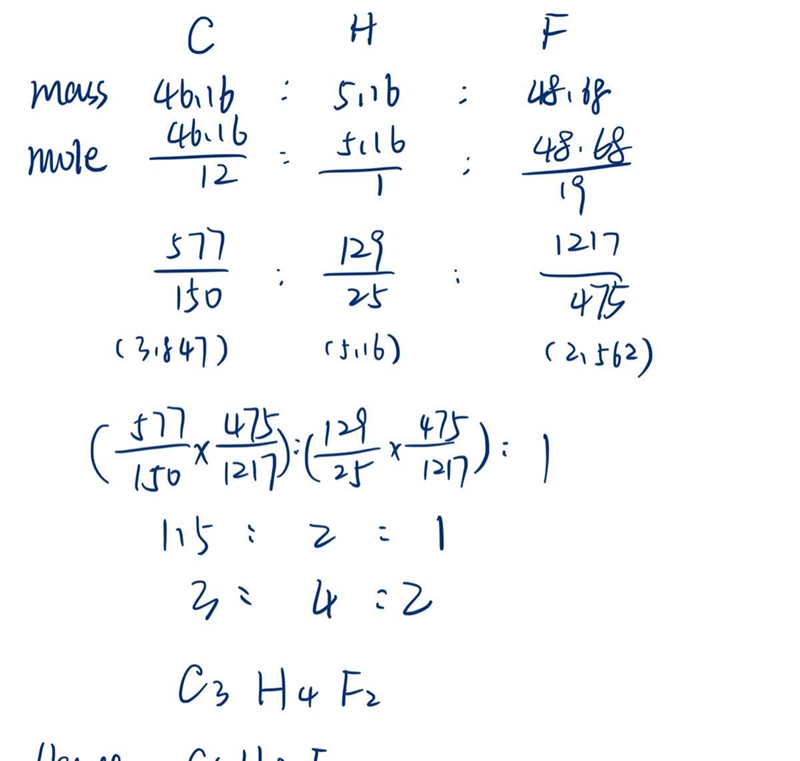 C H F
mass 46.16 : 5.16 : 48.68
mole 46.16/12 : 5.16/1 : 48.68/19
577/150 : 129/25 : 1217/475
(3.847) (5.16) (2.562)
(577/150 × 475/1217) : (129/25 × 475/1217) : 1
1.5 : 2 : 1
3 : 4 : 2
C3 H4 F2